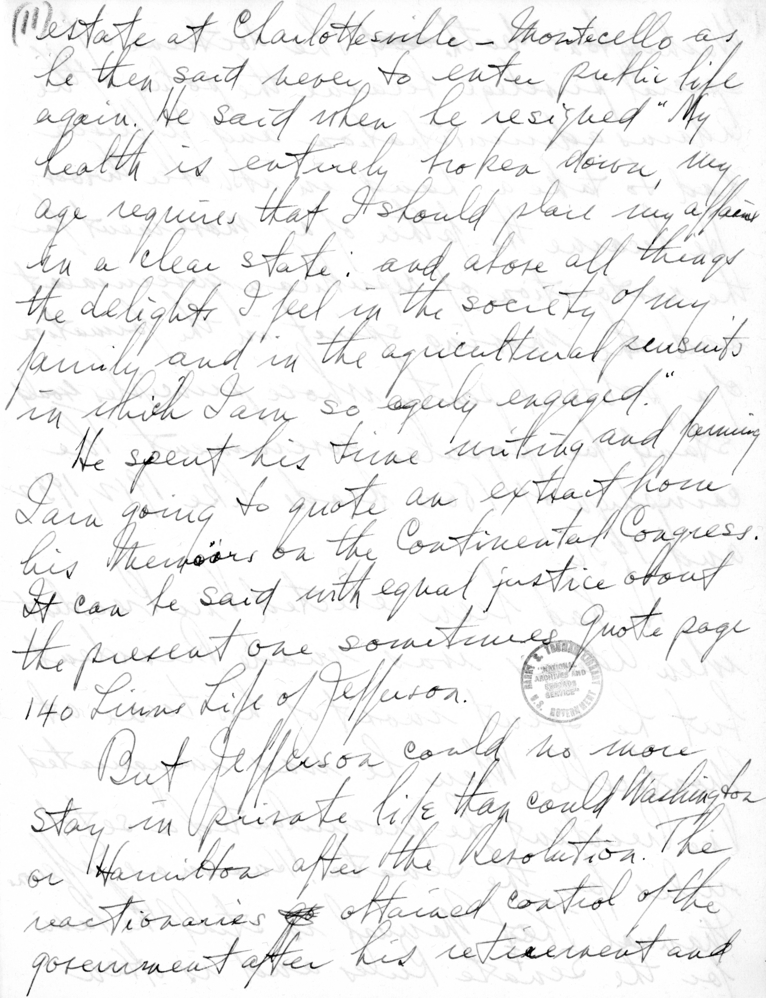 (11) estate at Charlottesville - Monticello as
he then said never to enter public life
again. He said when he resigned "My
health is entirely broken down, my
age requires that I should place my affairs
in a clear state: and above all things
the delights I feel in the society of my
family and in the agricultural pursuits
in which I am so egerly engaged."
He spent his time writing and farming
I am going to quote an extract from
his Memoirs on the Continental Congress.
It can be said with equal justice about
the present one sometimes Quote page
140 Linns Life of Jefferson.
HARRY S. TRUMAN LIBRARY
"NATIONAL
ARCHIVES AND
RECORDS
SERVICE"
U.S. GOVERNMENT
But Jefferson could no more
stay in private life than could Washington
or Hamilton after the Revolution. The
reactionaries obtained control of the
government after his retirement and